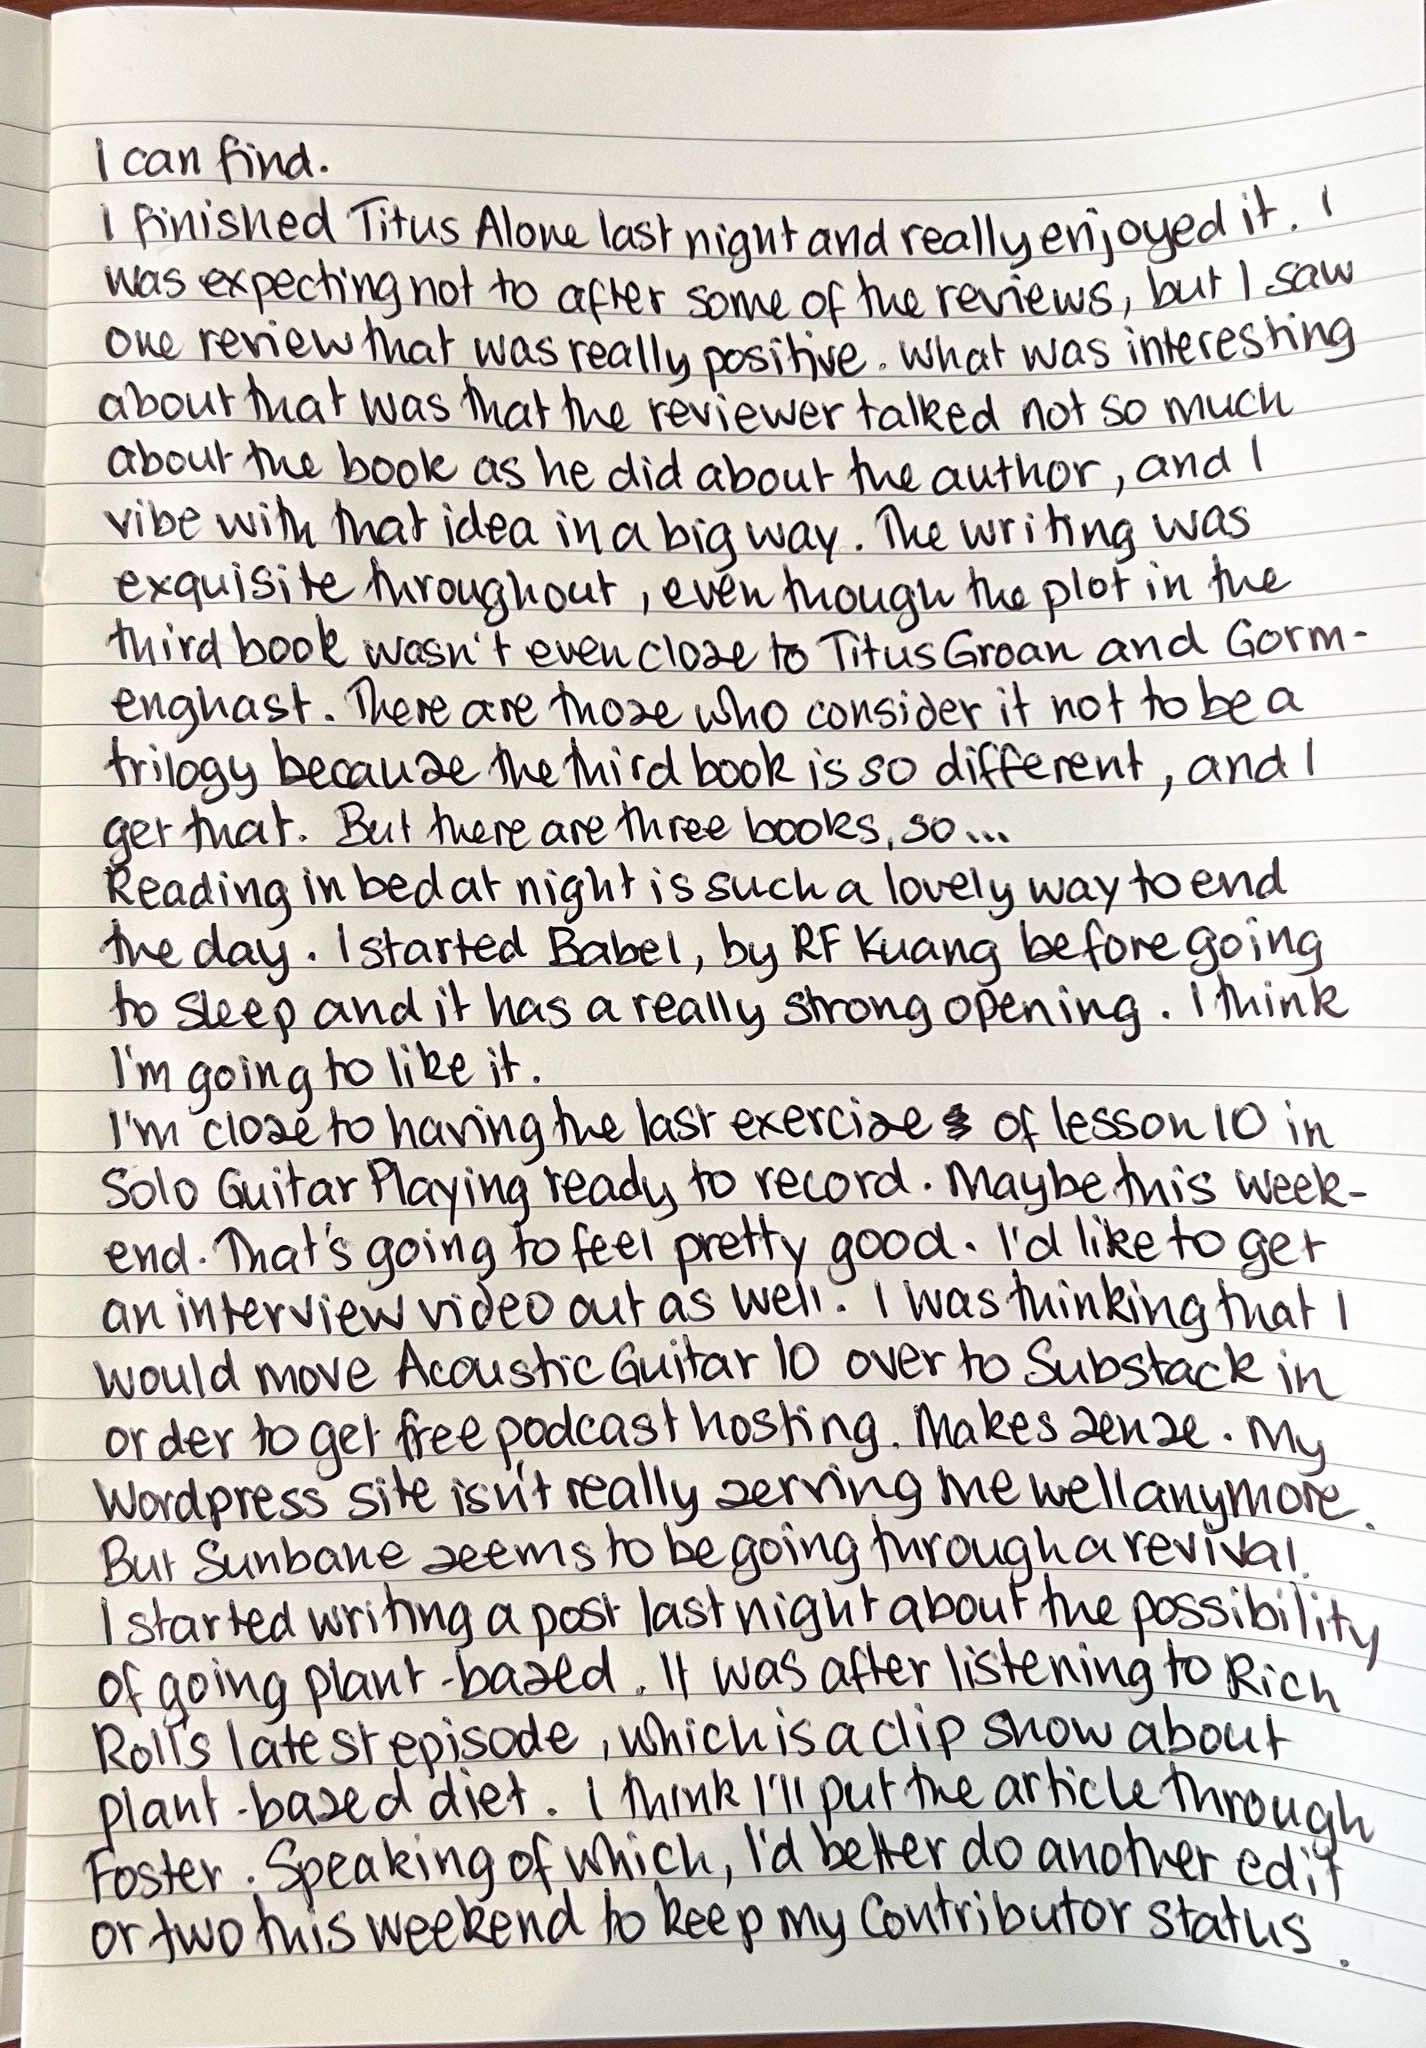 I can find.
I finished Titus Alone last night and really enjoyed it. I
was expecting not to after some of the reviews, but I saw
one review that was really positive. What was interesting
about that was that the reviewer talked not so much
about the book as he did about the author, and I
vibe with that idea in a big way. The writing was
exquisite throughout, even though the plot in the
third book wasn't even close to Titus Groan and Gorm-
enghast. There are those who consider it not to be a
trilogy because the third book is so different, and I
get that. But there are three books, so...
Reading in bed at night is such a lovely way to end
the day. I started Babel, by RF Kuang before going
to sleep and it has a really strong opening. I think
I'm going to like it.
I'm close to having the last exercise of lesson 10 in
Solo Guitar Playing ready to record. Maybe this week-
end. That's going to feel pretty good. I'd like to get
an interview video out as well. I was thinking that I
would move Acoustic Guitar IO over to Substack in
order to get free podcast hosting. Makes sense. My
Wordpress site isn't really serving me well anymore.
But Sunbane seems to be going through a revival.
I started writing a post last night about the possibility
of going plant-based. It was after listening to Rich
Roll's latest episode, which is a clip show about
plant-based diet. I think I'll put the article through
Foster. Speaking of which, I'd better do another edit
or two this weekend to keep my Contributor status.